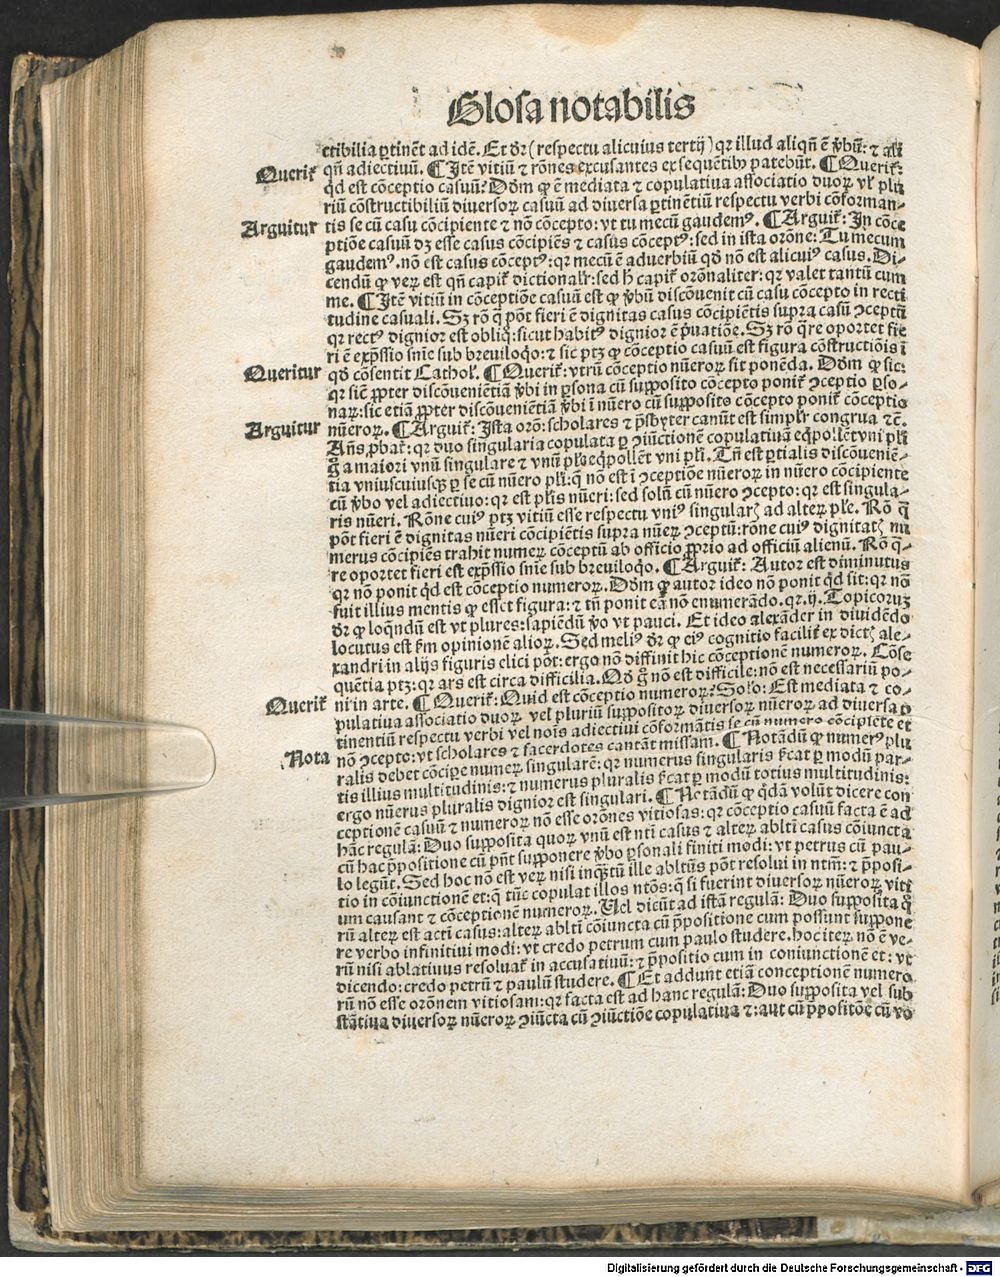 Glosa notabilis
ctibilia ꝑtinēt ad idē. Et dr̄ (respectu alicuius tertij) qꝛ illud aliqñ ē v̓bū: ⁊ ali
Querit᷑
qñ adiectiuū. ¶ Itē vitiū ⁊ rōnes excusantes ex sequētibꝰ patebūt. ¶ Querit᷑:
qd̓ est cōceptio casuū? Dōm ꝙ ē mediata ⁊ copulatiua associatio duoꝝ vl̓ plu
riū cōstructibiliū diuersoꝝ casuū ad diuersa ꝑtinētiū respectu verbi cōforman-
Arguitur
tis se cū casu cōcipiente ⁊ nō cōcepto: vt tu mecū gaudemꝰ. ¶ Arguit᷑: In cōce
ptiōe casuū dꝫ esse casus cōcipiēs ⁊ casus cōceptꝰ: sed in ista orōne: Tu mecum
gaudemꝰ. nō est casus cōceptꝰ: qꝛ mecū ē aduerbiū qd̓ nō est alicuiꝰ casus. Di-
cendū ꝙ veꝝ est qñ capit᷑ dictionalr̄: sed h̓ capit᷑ orōnaliter: qꝛ valet tantū cum
me. ¶ Itē vitiū in cōceptiōe casuū est ꝙ v̓bū discōuenit cū casu cōcepto in recti
tudine casuali. Sꝫ rō q̄ pōt fieri ē dignitas casus cōcipiētis supra casū ↄceptū
qꝛ rectꝰ dignior est obliq̓: sicut habitꝰ dignior ē p̓uatiōe. Sꝫ rō q̄re oportet fie
ri ē exp̄ssio snīe sub breuiloq̓o: ⁊ sic ptꝫ ꝙ cōceptio casuū est figura cōstructiōis ī
Queritur
qd̓ cōsentit Cathol̓. ¶ Querit᷑: vtrū cōceptio nūeroꝝ sit ponēda. Dōm ꝙ sic:
qꝛ sic̄ ꝓpter discōuenientiā v̓bi in ꝑsona cū supposito cōcepto ponit᷑ ↄceptio ꝑso-
naꝝ: sic etiā ꝓpter discōueniētiā v̓bi ī nūero cū supposito cōcepto ponit᷑ cōceptio
Arguitur
nūeroꝝ. ¶ Arguit᷑: Ista orō: scholares ⁊ p̄sbyter canūt est simplr̄ congrua ⁊c̄.
Añs ꝓbat᷑: qꝛ duo singularia copulata ꝑ ↄiūctionē copulatiuā eq̄pollēt vni pl̓i
g̊ a maiori vnū singulare ⁊ vnū pl̓e eq̄pollēt vni pl̓i. Tñ est ꝑtialis discōueniē-
tia vniuscuiusqꝫ ꝑ se cū nūero pl̓i: q̄ nō est ī ↄceptiōe nūeroꝝ in nūero cōcipiente
cū v̓bo vel adiectiuo: qꝛ est pl̓is nūeri: sed solū cū nūero ↄcepto: qꝛ est singula-
ris nūeri. Rōne cuiꝰ ptꝫ vitiū esse respectu vniꝰ singularꝭ ad alteꝝ pl̓e. Rō q̄
pōt fieri ē dignitas nūeri cōcipiētis supra nūeꝝ ↄceptū: rōne cuiꝰ dignitatꝭ nu
merus cōcipiēs trahit numeꝝ cōceptū ab officio ꝓprio ad officiū alienū. Rō q̄-
re oportet fieri est exp̄ssio snīe sub breuiloq̓o. ¶ Arguit᷑: Autor est diminutus
qꝛ nō ponit qd̓ est cōceptio numeroꝝ. Dōm ꝙ autor ideo nō ponit qd̓ sit: qꝛ nō
fuit illius mentis ꝙ esset figura: ⁊ tñ ponit eā nō enumerādo. qꝛ .ij. Topicoꝛuꝫ
dr̄ ꝙ loq̄ndū est vt plures: sapiēdū v̓o vt pauci. Et ideo alexāder in diuidēdo
locutus est ẜm opinionē alioꝝ. Sed meliꝰ dr̄ ꝙ eiꝰ cognitio facilit᷑ ex dictꝭ ale-
xandri in alijs figuris elici pōt: ergo nō diffinit hic cōceptionē numeroꝝ. Cōse
quētia ptꝫ: qꝛ ars est circa difficilia. Qd̓ g̊ nō est difficile: nō est necessariū po-
Querit᷑
ni in arte. ¶ Querit᷑: Quid est cōceptio numeroꝝ? Solo: Est mediata ⁊ co-
pulatiua associatio duoꝝ vel pluriū suppositoꝝ diuersoꝝ nūeroꝝ ad diuersa ꝑ
tinentiū respectu verbi vel nois adiectiui cōformātis se cū numero cōcipiēte et
Nota
nō ↄcepto: vt scholares ⁊ sacerdotes cantāt missam. ¶ Notādū ꝙ numerꝰ plu
ralis debet cōciꝑe numeꝝ singularē: qꝛ numerus singularis ẜcat ꝑ modū par-
tis illius multitudinis: ⁊ numerus pluralis ẜcat ꝑ modū totius multitudinis:
ergo nūerus pluralis dignior est singulari. ¶ Notādū ꝙ qdā volūt dicere con
ceptionē casuū ⁊ numeroꝝ nō esse orōnes vitiosas: qꝛ cōceptio casuū facta ē ad
hāc regulā: Duo supposita quoꝝ vnū est nt̄i casus ⁊ alteꝝ ablt̄i casus cōiuncta
cū hac p̄positione cū pn̄t supponere v̓bo ꝑsonali finiti modi: vt petrus cū pau-
lo legūt. Sed hoc nō est veꝝ nisi inqꝫtū ille ablt̄us pōt resolui in nt̄m: ⁊ p̄posi-
tio in cōiunctionē et: q̄ tūc copulat illos nt̄os: q̄ si fuerint diuersoꝝ nūeroꝝ viti
um causant ⁊ cōceptionē numeroꝝ. Vel dicūt ad istā regulā: Duo supposita q̊
rū alteꝝ est act̄i casus: alteꝝ ablt̄i cōiuncta cū p̄positione cum possunt suppone
re verbo infinitiui modi: vt credo petrum cum paulo studere. hoc iteꝝ nō ē ve-
rū nisi ablatiuus resoluat᷑ in accusatiuū: ⁊ p̄positio cum in coniunctionē et: vt
dicendo: credo petrū ⁊ paulū studere. ¶ Et addunt etiā conceptionē numero
rū nō esse orōnem vitiosam: qꝛ facta est ad hanc regulā: Duo supposita vel sub
stātiua diuersoꝝ nūeroꝝ ↄiūcta cū ↄiūctiōe copulatiua ⁊: aut cū p̄positōe cū vo
Digitalisierung gefördert durch die Deutsche Forschungsgemeinschaft - DFG